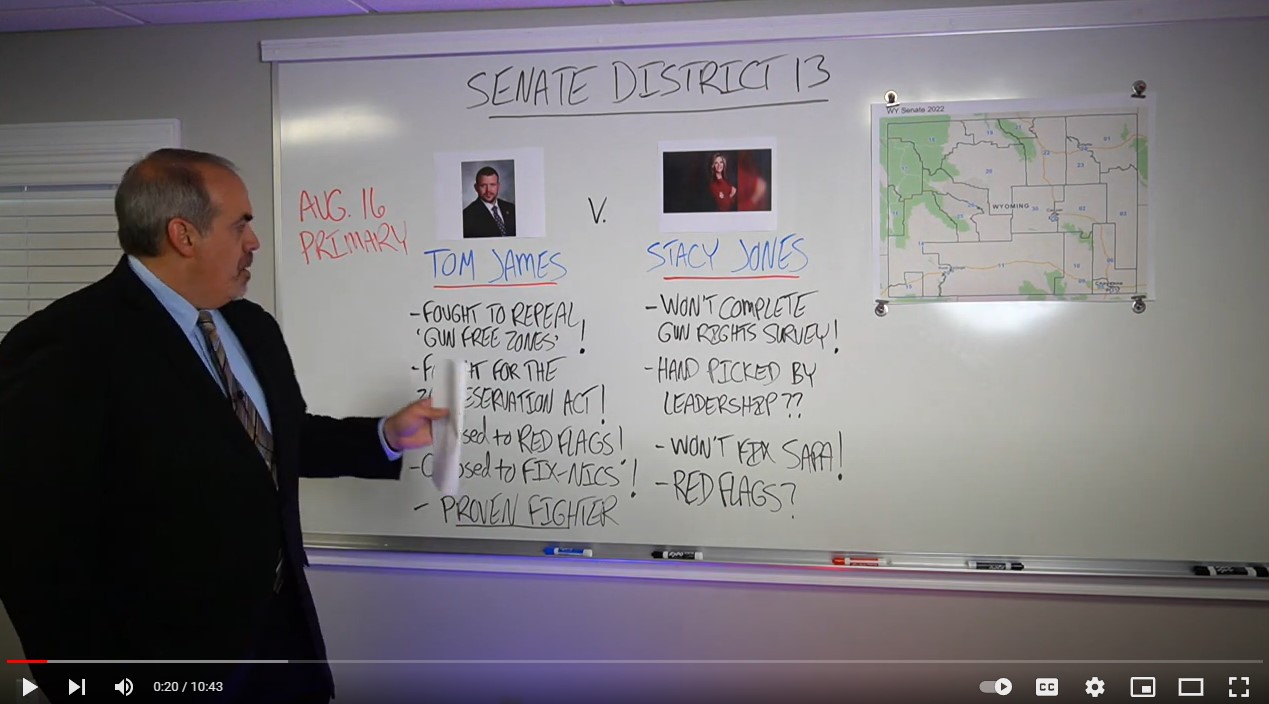 SENATE DISTRICT 13
AUG. 16
PRIMARY
TOM JAMES
- FOUGHT TO REPEAL
'GUN FREE ZONES' !
- FOR THE
ACT!
to RED FLAGS!
- to FIX-NICS' !
- PROVEN FIGHTER
V.
STACY JONES
- WON'T COMPLETE
GUN RIGHTS SURVEY!
- HAND PICKED BY
LEADERSHIP??
- WON'T FIX SAPA!
- RED FLAGS?
WY Senate 2022
WYOMING
0:20 / 10:43
CC